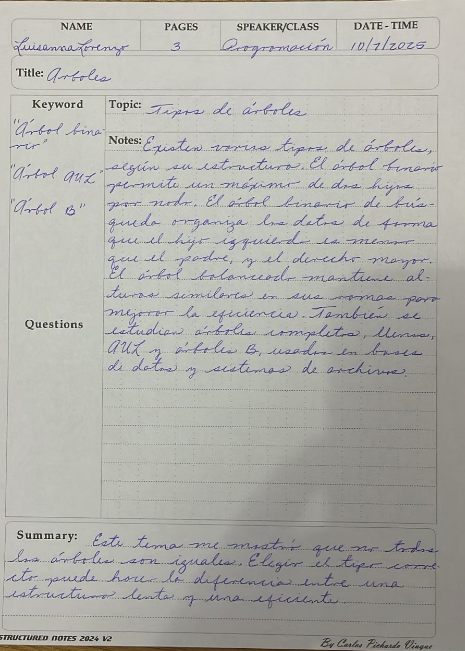 NAME PAGES SPEAKER/CLASS DATE - TIME
Luisanna Lorenzo 3 Programación 10/7/2025
Title: Árboles
Keyword Topic: Tipos de árboles
"Árbol bina-
rio"
"Árbol AVL"
"Árbol B"
Notes: Existen varios tipos de árboles,
según su estructura. El árbol binario
permite un máximo de dos hijos
por nodo. El árbol binario de bús-
queda organiza los datos de forma
que el hijo izquierdo es menor
que el padre, y el derecho mayor.
El árbol balanceado mantiene al-
turas similares en sus ramas para
mejorar la eficiencia. También se
estudian árboles completos, llenos,
AVL y árboles B, usados en bases
de datos y sistemas de archivos.
Questions
Summary: Este tema me mostró que no todos
los árboles son iguales. Elegir el tipo corre-
cto puede hacer la diferencia entre una
estructura lenta y una eficiente.
STRUCTURED NOTES 2024 V2 By Carlos Pichardo Vinque